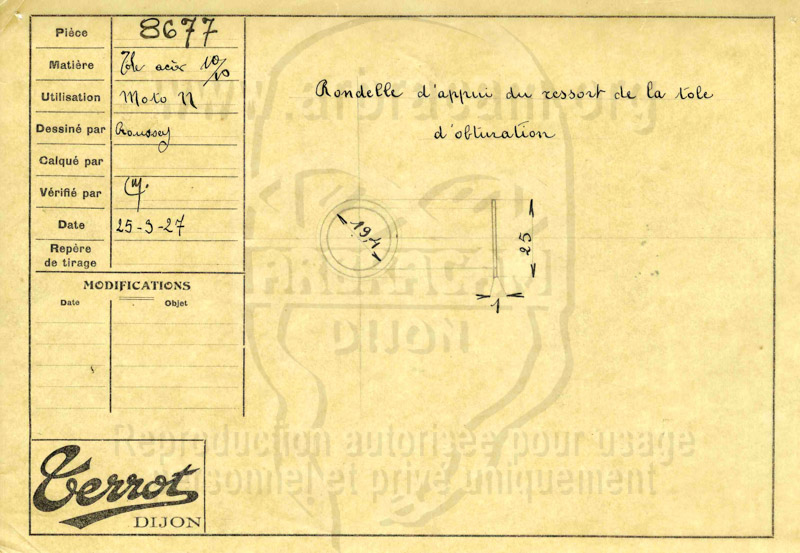 Pièce 8677
Matière Tole acier 10/10
Utilisation Moto N
Dessiné par Roussey
Calqué par
Vérifié par
Date 25-3-27
Repère
de tirage
MODIFICATIONS
Date Objet
Rondelle d'appui du ressort de la tole
d'obturation
19,4
25
1
Terrot
DIJON
DIJON
Reproduction autorisée pour usage
personnel et privé uniquement